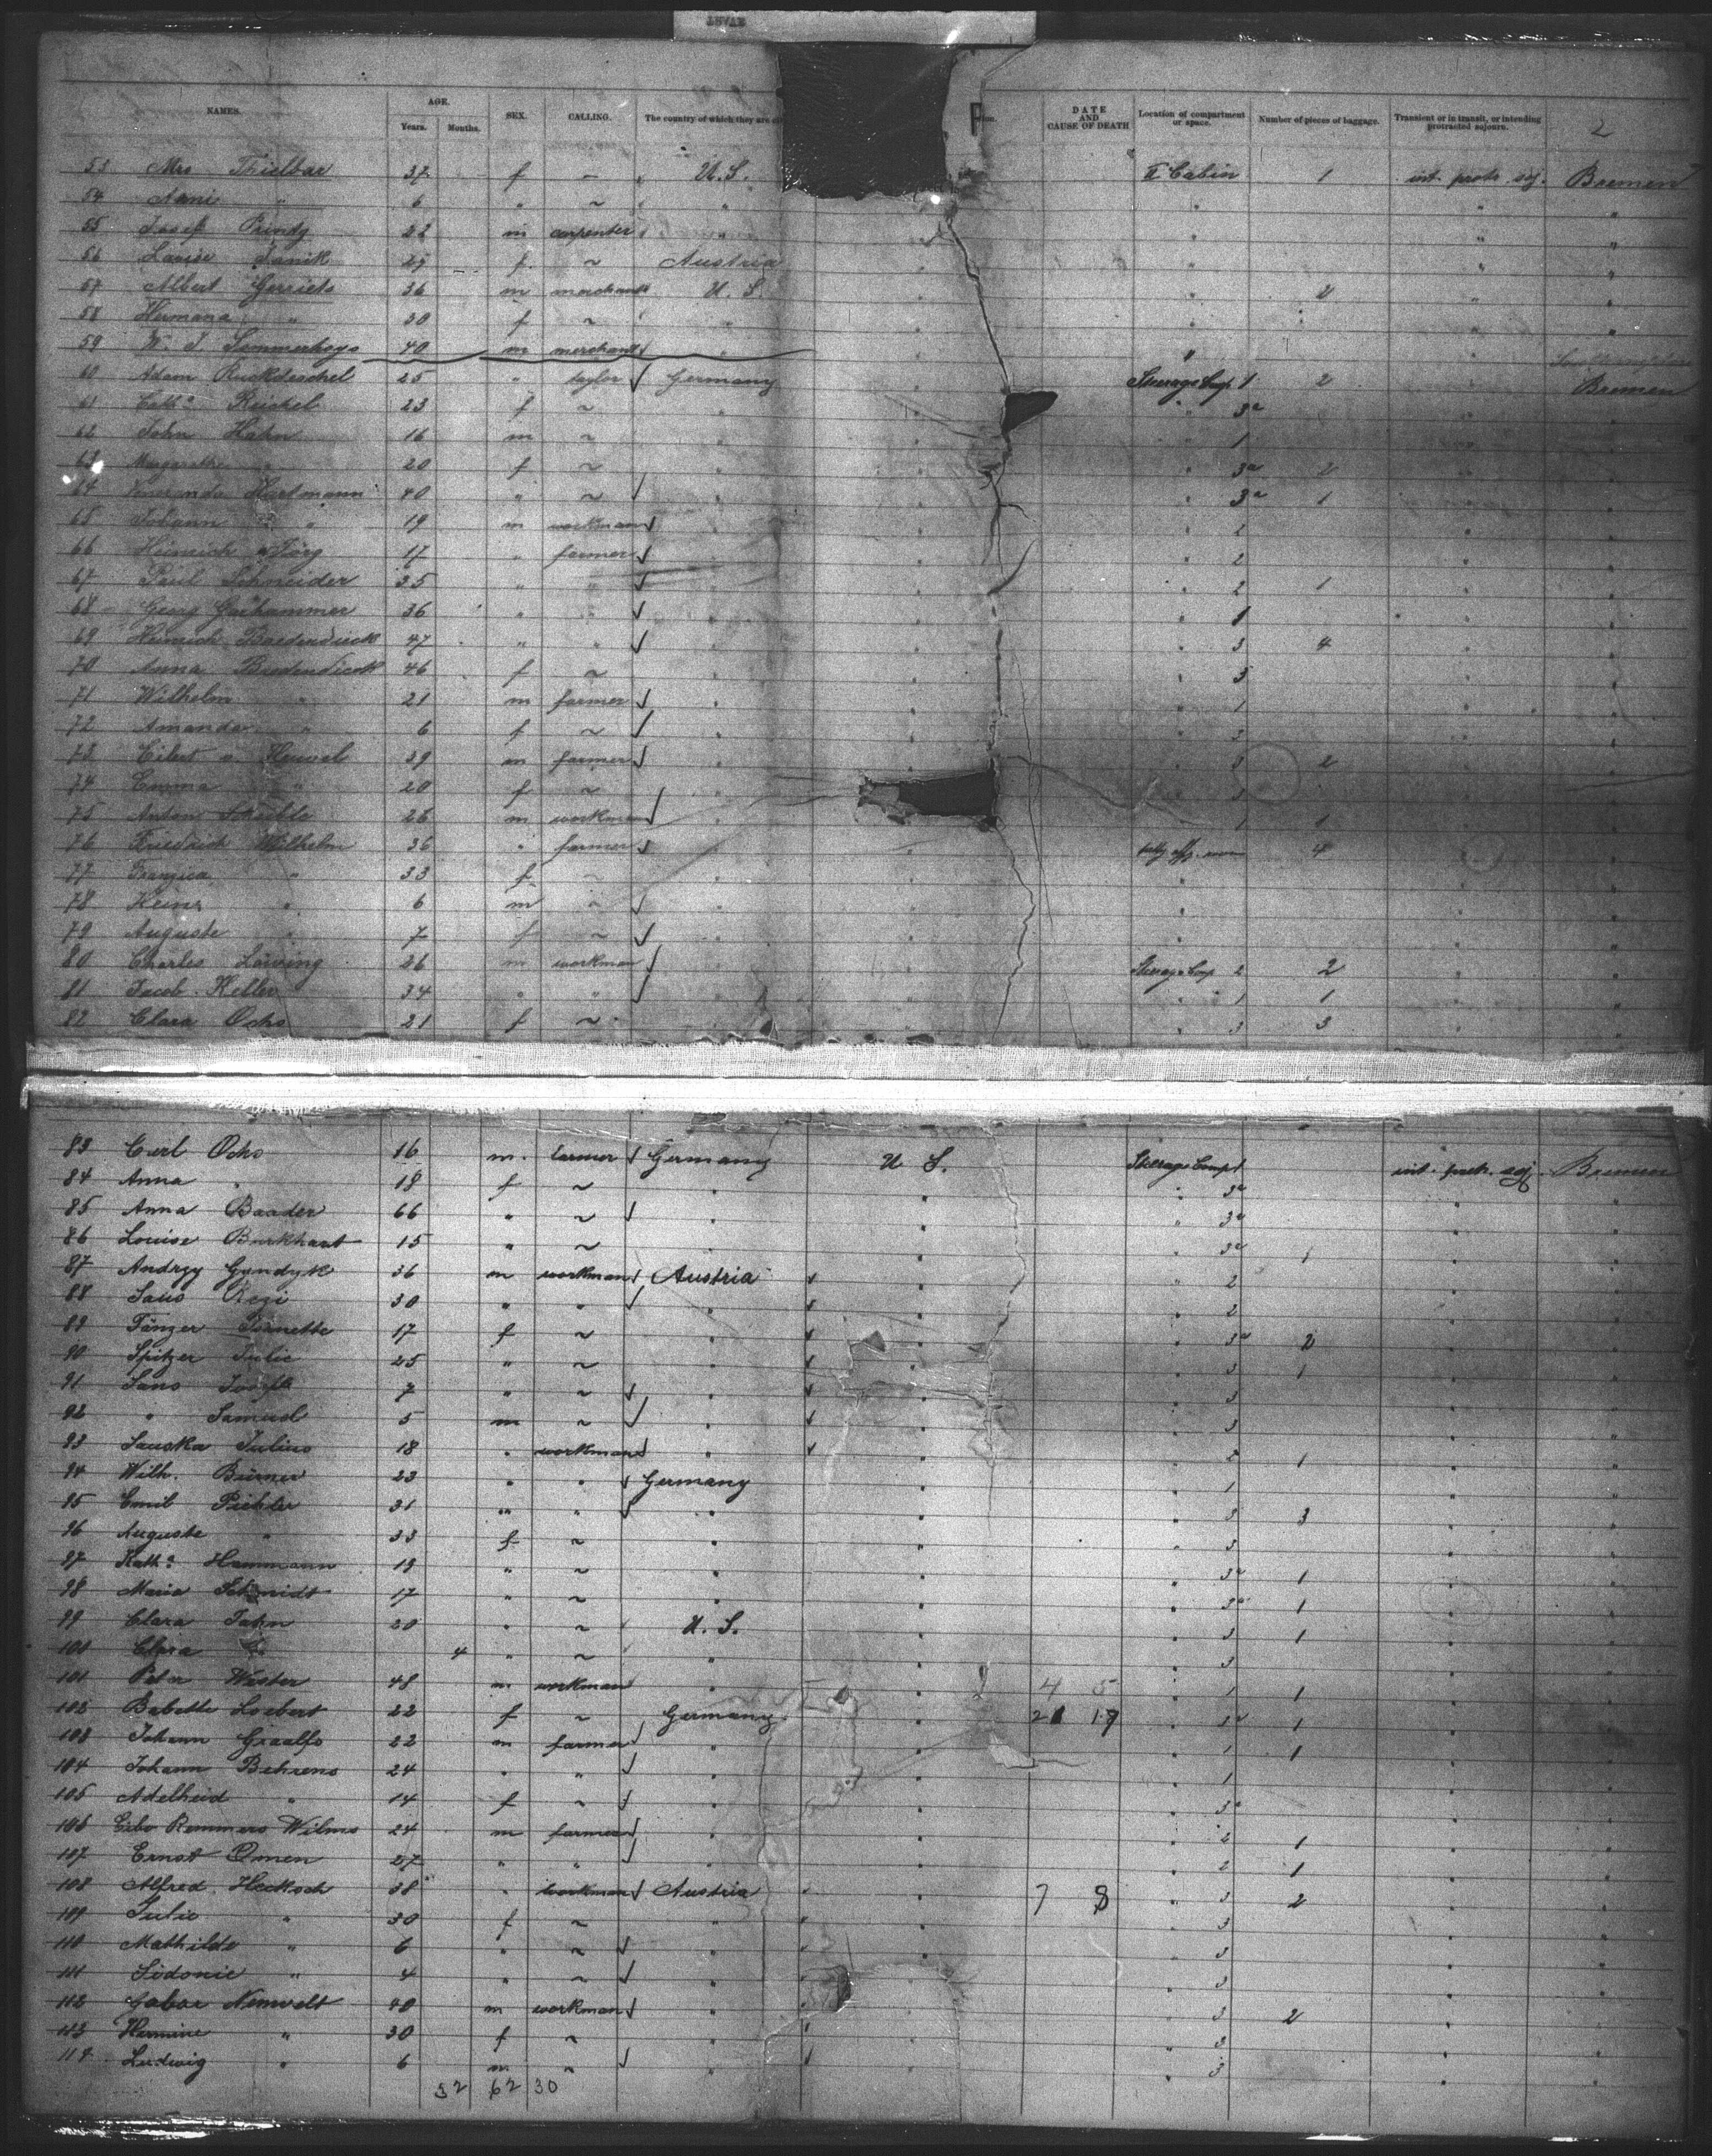 NAMES. AGE. Years. Months. SEX. CALLING. The country of which they are DATE AND CAUSE OF DEATH Location of compartment or space. Number of pieces of baggage. Transient or in transit, or intending protracted sojourn. 2
53 Mrs Thielbar 37 f – U.S. II Cabin 1 int. protr. soj. Bremen
54 " 6 " ~ " " " "
55 Josef Prindy 22 m carpenter " " "
56 Louise Janik 29 f. ~ Austria " " "
57 Albert Gerriets 36 m merchant U. S. " 2 " "
58 Hermana " 30 f ~ " " " "
59 W. J. Summerhays 40 m merchant " "
60 Adam Ruckdeschel 25 " taylor Germany Steerage Comp. 1 2 " Bremen
61 Cath? Reichel 23 f ~ " " " 3a
62 John Hahn 16 m ~ " " " 1
63 Margarethe " 20 f ~ " " " 3a 2
64 Hartmann 40 " ~ " " " 3a 1
65 Johann " 19 m workman " " " 2
66 Heinrich Jörg 17 " farmer " " " 2
67 Paul Schneider 35 " " " " " 2 1
68 Georg Garhammer 36 " " " " " 1
69 Heinrich Bredendieck 47 " " " " " 3 4
70 Anna Bredendieck 46 f ~ " " " 3
71 Wilhelm " 21 m farmer " " " 1
72 Amanda " 6 f ~ " " " 3
73 Eilert v. Heuvel 29 m farmer " " 3 2
74 Emma " 20 f ~ " " 3
75 Anton Scheible 26 m workman " " 1 1
76 Friedrich Wilhelm 36 " farmer " " 4
77 Franzisca " 33 f ~ " " "
78 Heinr " 6 m ~ " " "
79 Auguste " 7 f ~ " " "
80 Charles Löwing 26 m workman " " Steerage Comp 2 2
81 Jacob Heller 34 " " " " " 1 1
82 Clara Ochs 21 f ~ " " " 3 3
83 Carl Ochs 16 m. farmer Germany U. S. Steerage Comp 1 int. protr. soj. Bremen
84 Anna " 18 f ~ " " " 3a " "
85 Anna Baader 66 " ~ " " " 3a " "
86 Louise Burkhart 15 " ~ " " " 3a 1 " "
87 Andrzy Gyndyk 36 m workman Austria " " 2 " "
88 Regi 30 " " " " " 2 " "
89 Tänzer 17 f ~ " " " 3a 2 " "
90 Spitzer Julie 25 " ~ " " " 3 1 " "
91 7 " ~ " " " 3 " "
92 " Samuel 5 m ~ " " " 3 " "
93 Julius 18 " workman " " " 2 1 " "
94 Wilh. Börner 23 " " Germany " " 1 " "
95 Emil Pichler 31 " " " " " 3 3 " "
96 Auguste " 33 f ~ " " " 3 " "
97 Kath? Hammann 19 " ~ " " " 3a 1 " "
98 Maria Schmidt 17 " ~ " " " 3a 1 " "
99 Clara Jahn 20 " ~ U. S. " " 3 1 " "
100 Clara 4 " ~ " " " 3 " "
101 Peter Wester 48 m workman " 4 5 " 1 1 " "
102 Babette Loebert 22 f ~ Germany 21 19 " 3a 1 " "
103 Johann Graalfs 22 m farmer " " " 1 1 " "
104 Johann Behrens 24 " " " " " 1 " "
105 Adelheid " 14 f ~ " " " 3a " "
106 Remmers Wilms 24 m farmer " " " 2 1 " "
107 Ernst Omen 27 " " " " " 2 1 " "
108 Alfred Heckoch 38 " workman Austria " 7 8 " 3 2 " "
109 Julie " 30 f ~ " " " 3 " "
110 Mathilde " 6 " ~ " " " 3 " "
111 Sidonie " 4 " ~ " " " 3 " "
112 Gabor 40 m workman " " " 3 2 " "
113 Hermine " 30 f ~ " " " 3 " "
114 Ludwig " 6 m ~ " " " 3 " "
32 62 30